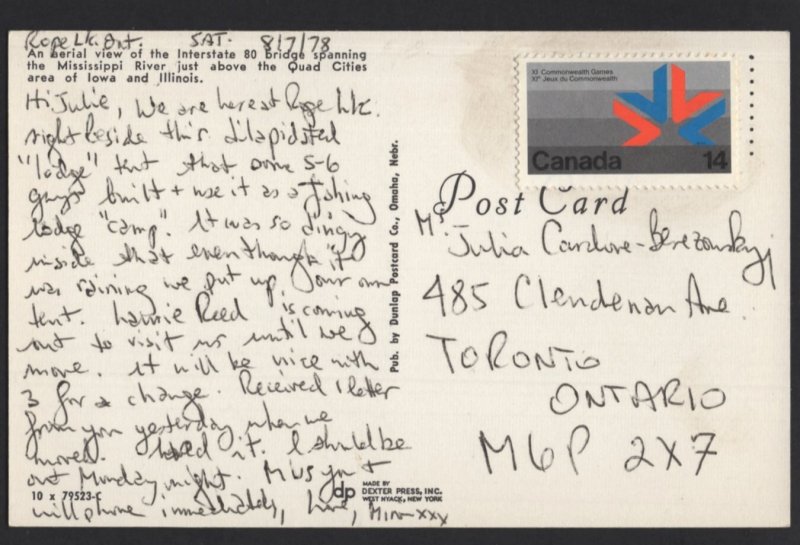 Rope Lk. Ont. SAT. 8/7/78
An aerial view of the Interstate 80 bridge spanning
the Mississippi River just above the Quad Cities
area of Iowa and Illinois.
Hi Julie, We are here at Rope Lk.
right beside this dilapidated
"lodge" tent that some 5-6
guys built + use it as a fishing
lodge "camp". It was so dingy
inside that even though it
was raining we put up our own
tent. Laurie Reed is coming
out to visit us until we
move. It will be nice with
3 for a change. Received 1 letter
from you yesterday when we
moved. it. I should be
out Monday night. Miss you +
will phone immediately, love, xxx
10 x 79523-C
Pub. by Dunlap Postcard Co., Omaha, Nebr.
dp MADE BY
DEXTER PRESS, INC.
WEST NYACK, NEW YORK
XI Commonwealth Games
XIes Jeux du Commonwealth
Canada 14
Post Card
Julia
485 Clendenan Ave.
TORONTO
ONTARIO
M6P 2X7